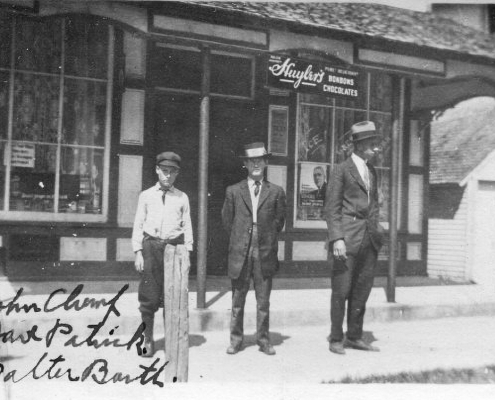 Huyler's
BONBONS
CHOCOLATES
John Chemf
Dave Patrick.
Walter Barth.